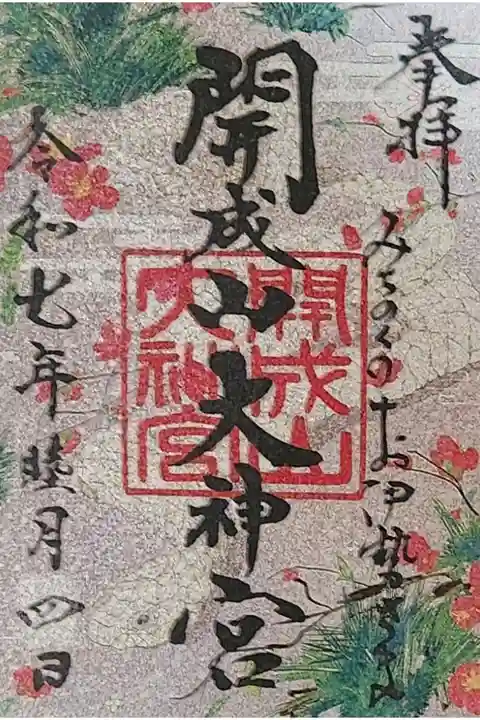 奉拝
みちのくのおお伊勢さま
開成山大神宮
開成山
大神宮
令和七年睦月四日